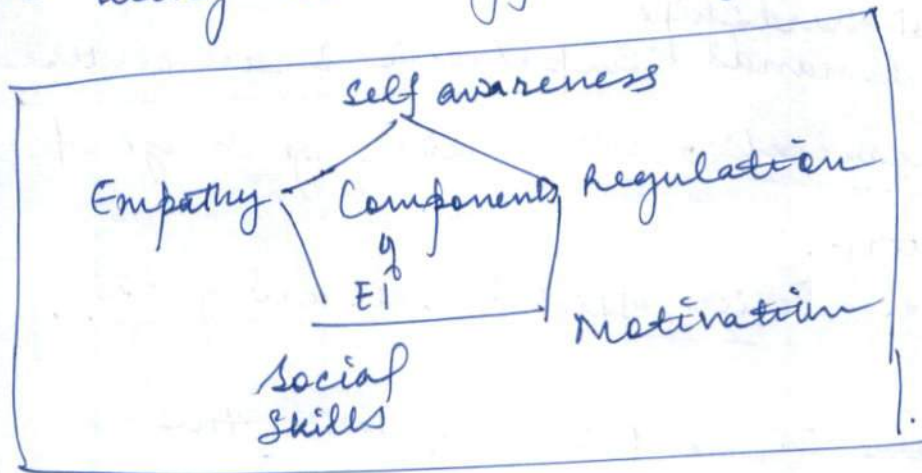 self awareness
Empathy Components Regulation
of
EI
Motivation
Social
Skills